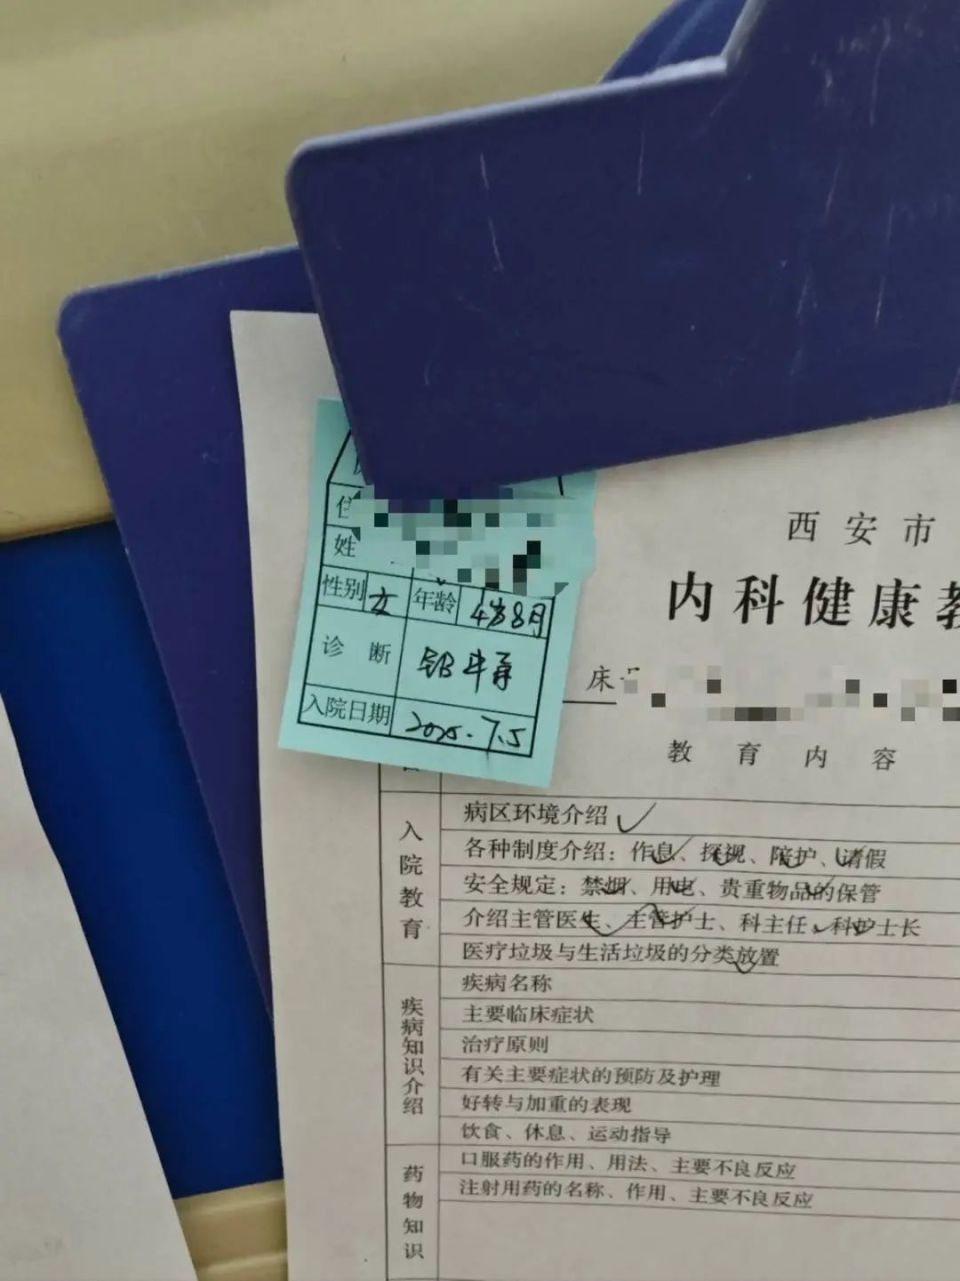 姓
性别 女 年龄 4岁8月
诊 断 铅中毒
入院日期 2025.7.5
西安市
内科健康教
床
教育内容
入院教育
病区环境介绍✓
各种制度介绍：作息、探视、陪护、请假
安全规定：禁烟、用电、贵重物品的保管
介绍主管医生、主管护士、科主任、科护士长
医疗垃圾与生活垃圾的分类放置
疾病知识介绍
疾病名称
主要临床症状
治疗原则
有关主要症状的预防及护理
好转与加重的表现
饮食、休息、运动指导
药物知识
口服药的作用、用法、主要不良反应
注射用药的名称、作用、主要不良反应